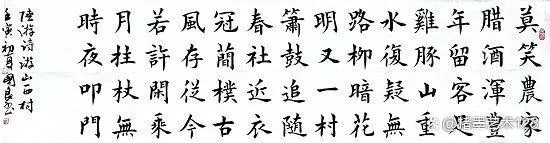 莫笑農家
腊酒渾豐
年留客足
雞豚山重
水復疑無
路柳暗花
明又一村
簫鼓追隨
春社近衣
冠簡樸古
風存從今
若許閑乘
月柱杖無
時夜叩門
陸游诗游山西村
壬寅初夏國良書